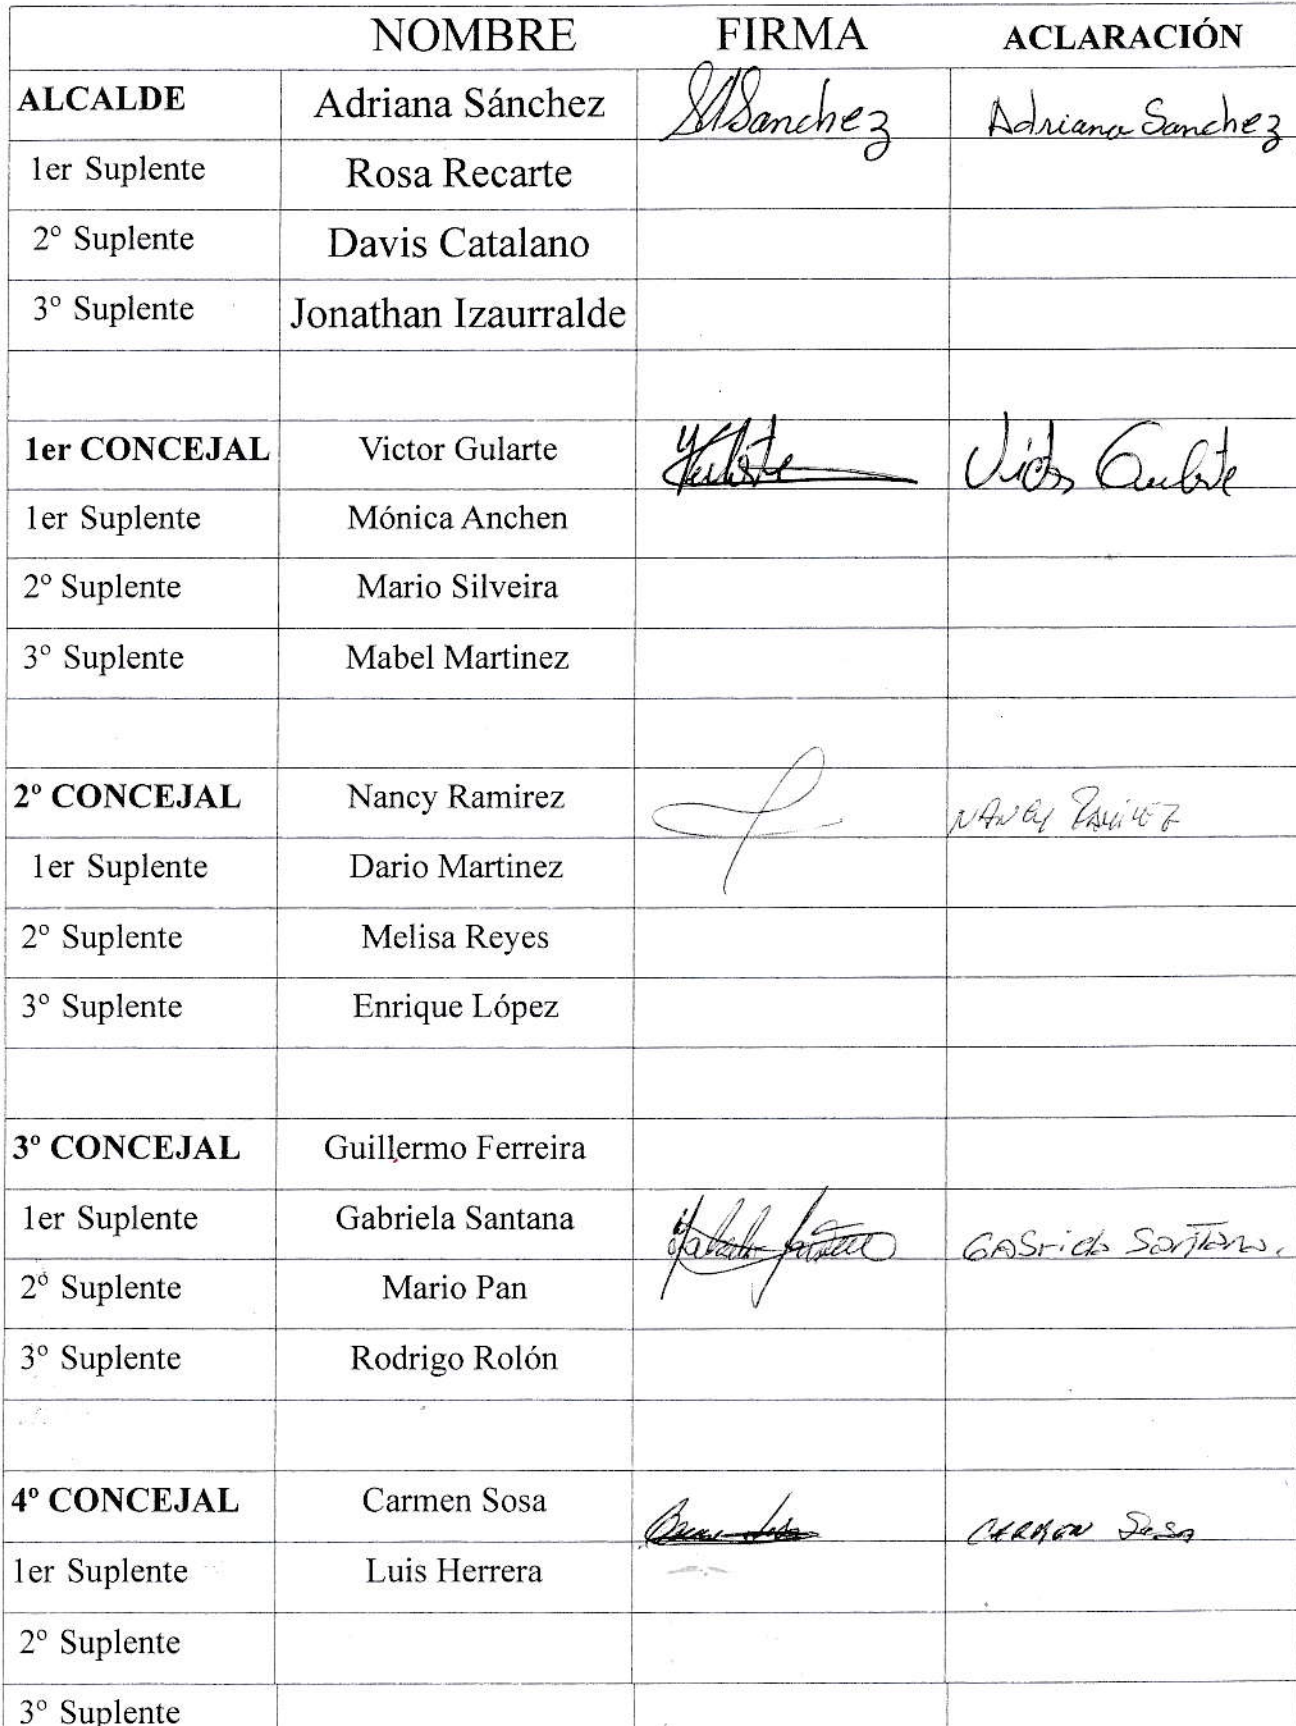 NOMBRE FIRMA ACLARACIÓN
ALCALDE Adriana Sánchez SASanchez Adriana Sanchez
1er Suplente Rosa Recarte
2º Suplente Davis Catalano
3º Suplente Jonathan Izaurralde
1er CONCEJAL Victor Gularte Victor Gularte
1er Suplente Mónica Anchen
2º Suplente Mario Silveira
3º Suplente Mabel Martinez
2º CONCEJAL Nancy Ramirez NANCY RAMIREZ
1er Suplente Dario Martinez
2º Suplente Melisa Reyes
3º Suplente Enrique López
3º CONCEJAL Guillermo Ferreira
1er Suplente Gabriela Santana GABriela Santana.
2º Suplente Mario Pan
3º Suplente Rodrigo Rolón
4º CONCEJAL Carmen Sosa CARMEN Sosa
1er Suplente Luis Herrera
2º Suplente
3º Suplente